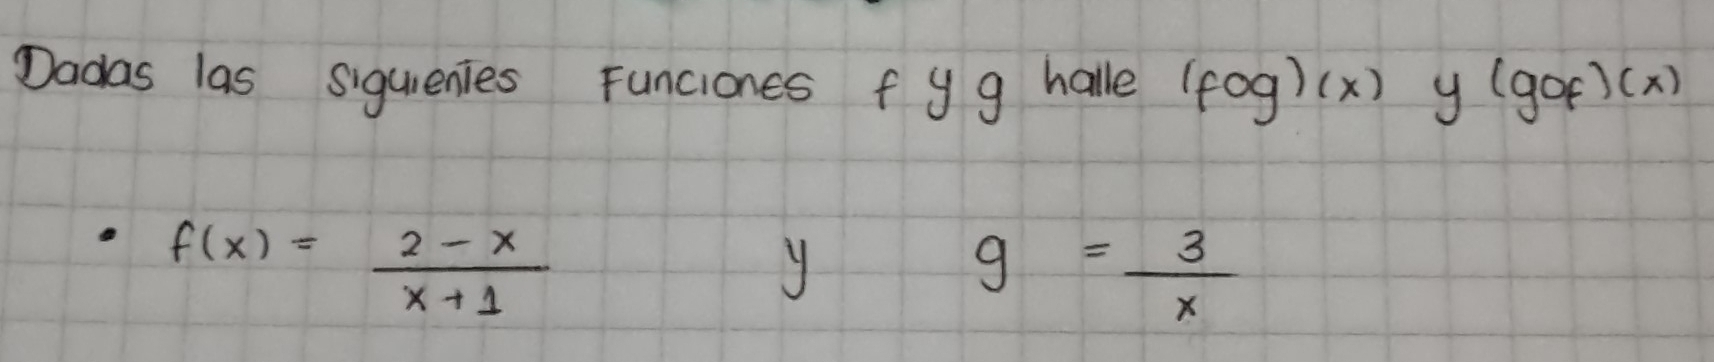 Dadas las siguientes Funciones f y g halle (fog)(x) y (gof)(x)
• f(x) = 2 - x / x + 1 y g = 3 / x